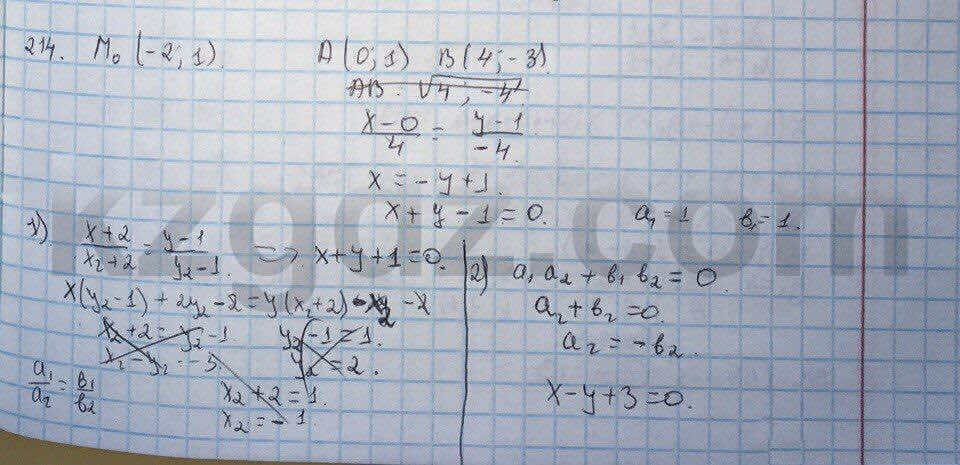 214. M₀ (-2; 1). A (0; 1) B (4; -3).
AB. √4; -4²
(x-0)/4 = (y-1)/-4.
x = -y+1.
x+y-1=0. a₁=1 b₁=1.
1). (x+2)/(x₂+2) = (y-1)/(y₂-1). => x+y+1=0.
x(y₂-1)+2y₂-2=y(x₂+2)-x₂-2
x₂+2=y₂-1 y₂-1=1.
x₂-y₂=-3. y₂=2.
a₁/a₂ = b₁/b₂ x₂+2=1.
x₂=-1.
2) a₁a₂+b₁b₂=0
a₂+b₂=0.
a₂=-b₂.
x-y+3=0.
kzgdz.com